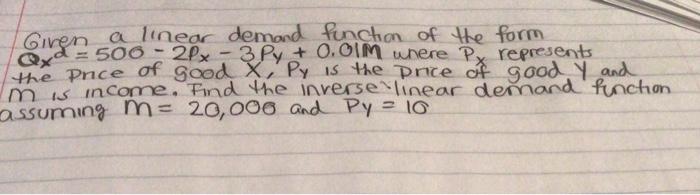 Given a linear demand function of the form
Qxd = 500 - 2Px - 3Py + 0.01M where Px represents
the price of good X, Py is the price of good Y and
M is income. Find the inverse linear demand function
assuming M = 20,000 and Py = 10